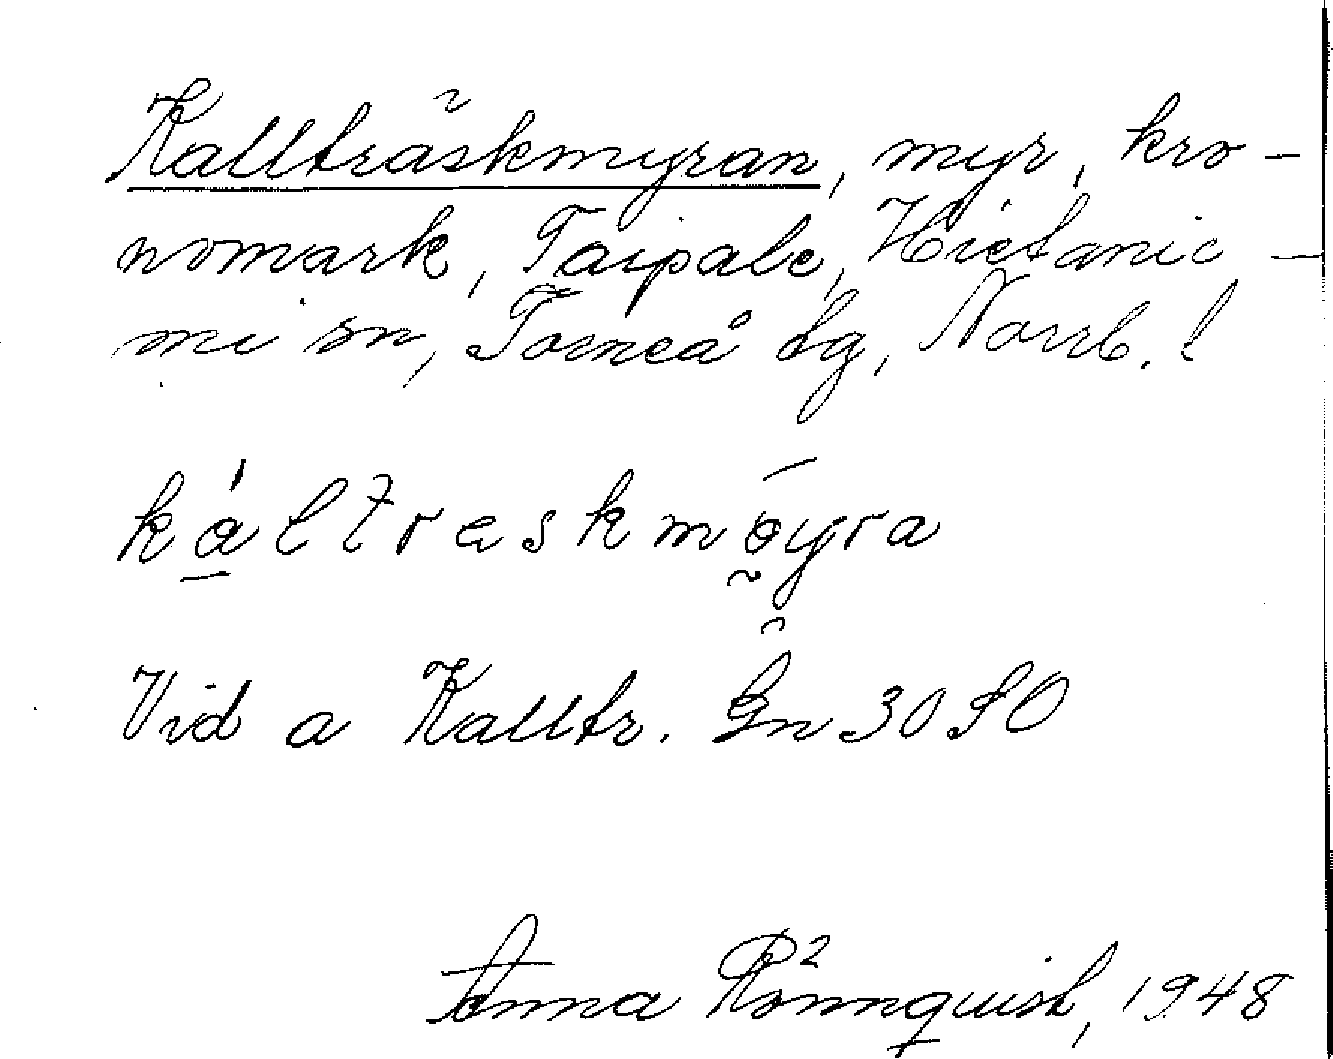 Kallträskmyran, myr, kro-
nomark, Taipale, Hietanie-
mi sn, Torneå tg, Norrb. l
kàltraskmöyra
Vid a Kalltr. Gn 30 SO
Anna Rönnquist, 1948